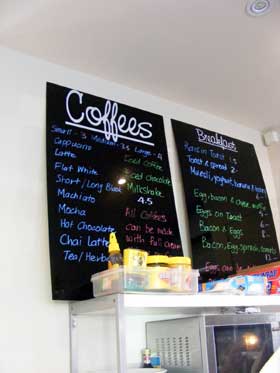 Coffees
Small - 3 Medium - 3.5 Large - 4
Cappucino
Latte
Flat White
Short / Long Black
Machiato
Mocha
Hot Chocolate
Chai Latte
Tea / Herbal
Iced Coffee
Iced chocolate
Milkshake
4.5
All Coffees
can be made
with full cream
Breakfast
Raisin Toast
Toast & spread
Muesli, yoghurt, banana &
Egg, bacon &
Eggs on Toast
Bacon & Eggs
Bacon, Egg,
Eggs can be